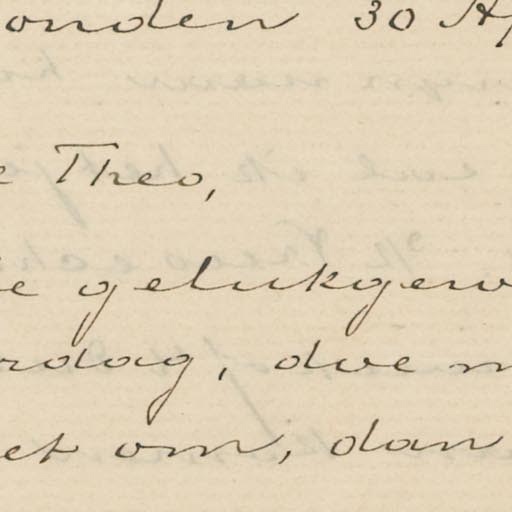 onden 30 Ap
e Theo,
e gelukgew
rdag, doe m
et om, dan